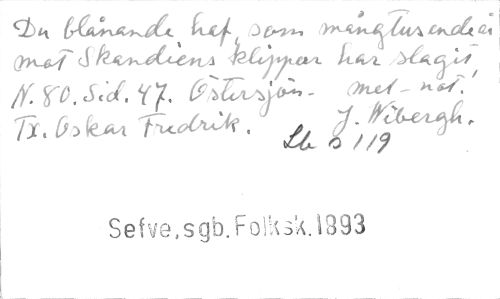 Du blånande haf, som mångtusende år
mot Skandiens klippor har slagit,
N. 80. Sid. 47. Östersjön. - mel - not.
Tx. Oskar Fredrik. J. Wibergh.
Lb s 119
Sefve, sgb. Folksk. 1893